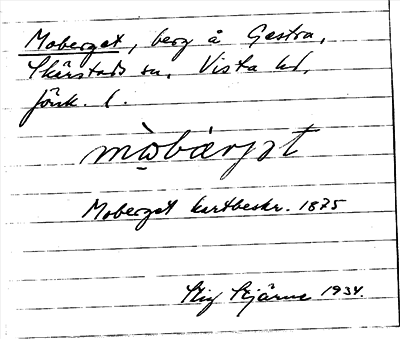 Moberget, berg å Gestra,
Skärstads sn. Vista hd,
Jönk. l.
mòbárjət
Moberget kartbeskr. 1875
Stig Stjärne 1934.